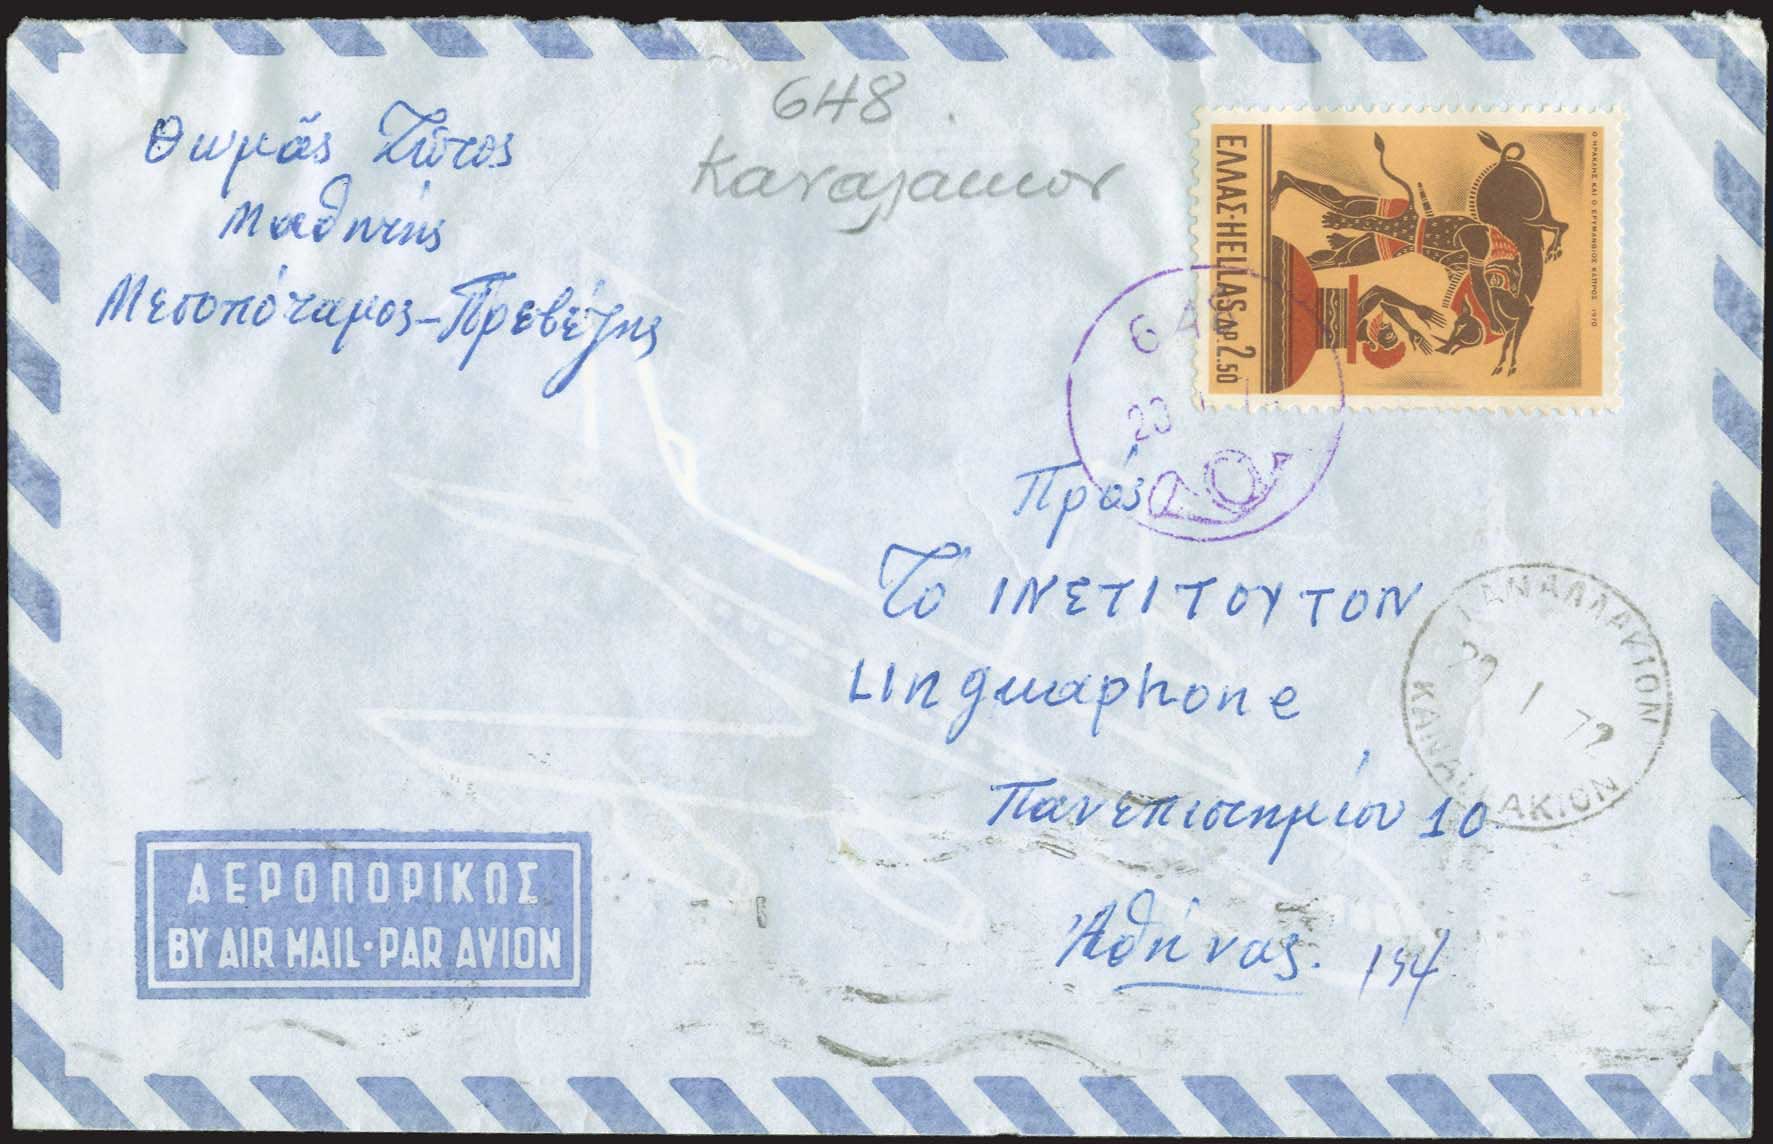 648
Καναλακιον
Θωμᾶς Ζῶτος
Μαθητής
Μεσοπόταμος-Πρεβέζης
Ο ΗΡΑΚΛΗΣ ΚΑΙ Ο ΕΡΥΜΑΝΘΙΟΣ ΚΑΠΡΟΣ 1970
ΕΛΛΑΣ-HELLAS ΔΡ. 2.50
Πρός
Τό ΙΝΣΤΙΤΟΥΤΟΝ
Linguaphone
Πανεπιστημίου 10
Ἀθήνας. 134
ΚΑΝΑΛΛΑΚΙΟΝ
22 1 72
ΚΑΝΑΛΛΑΚΙΟΝ
ΑΕΡΟΠΟΡΙΚΩΣ
BY AIR MAIL·PAR AVION